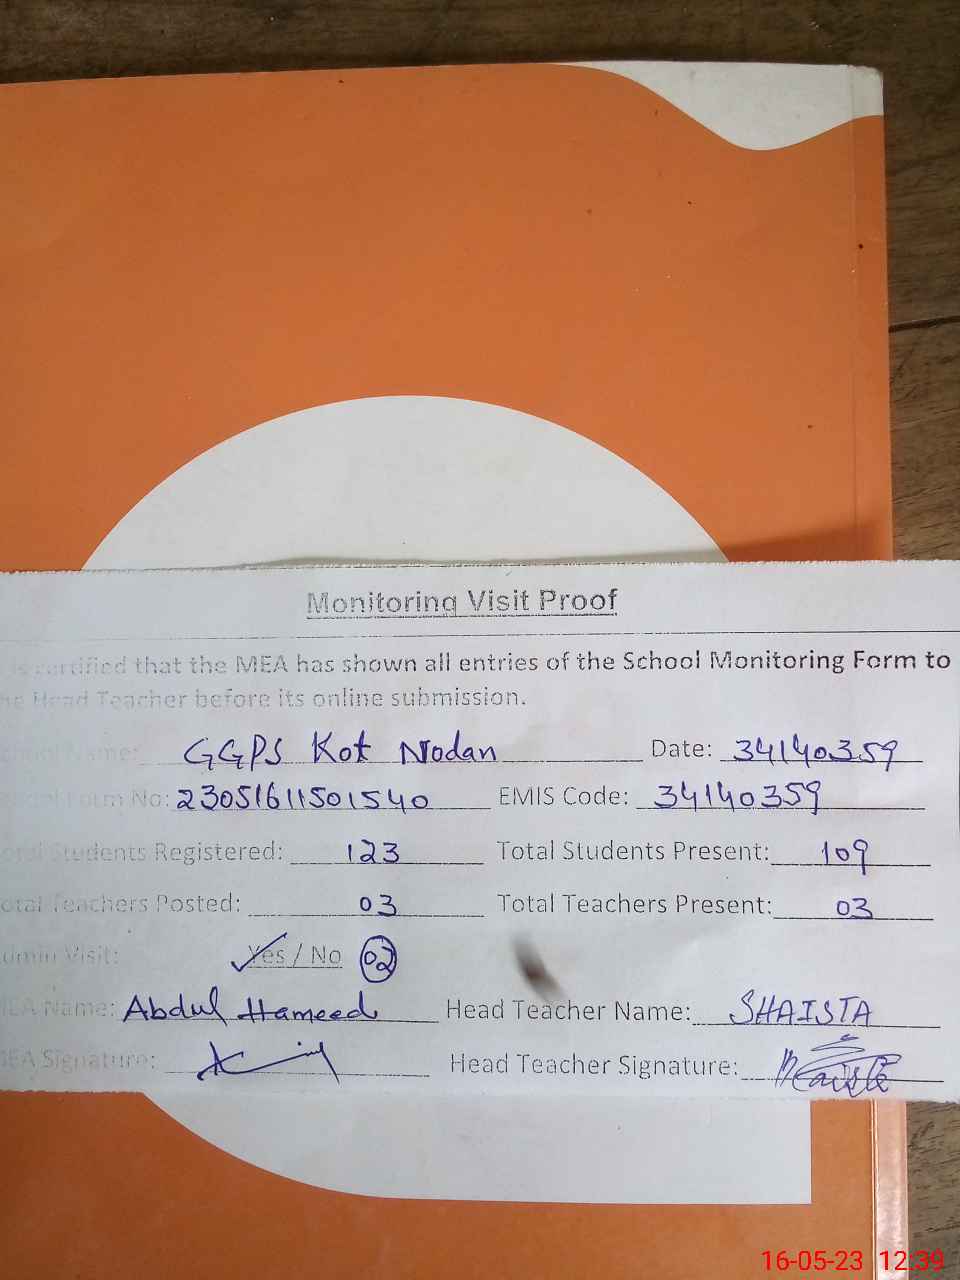 Monitoring Visit Proof
is certified that the MEA has shown all entries of the School Monitoring Form to
the Head Teacher before its online submission.
School Name: GGPS Kot Nodan Date: 34140359
School Form No: 23051611501540 EMIS Code: 34140359
Total Students Registered: 123 Total Students Present: 109
Total Teachers Posted: 03 Total Teachers Present: 03
Admin Visit: Yes / No 02
MEA Name: Abdul Hameed Head Teacher Name: SHAISTA
MEA Signature: Head Teacher Signature: Shaista
16-05-23 12:39